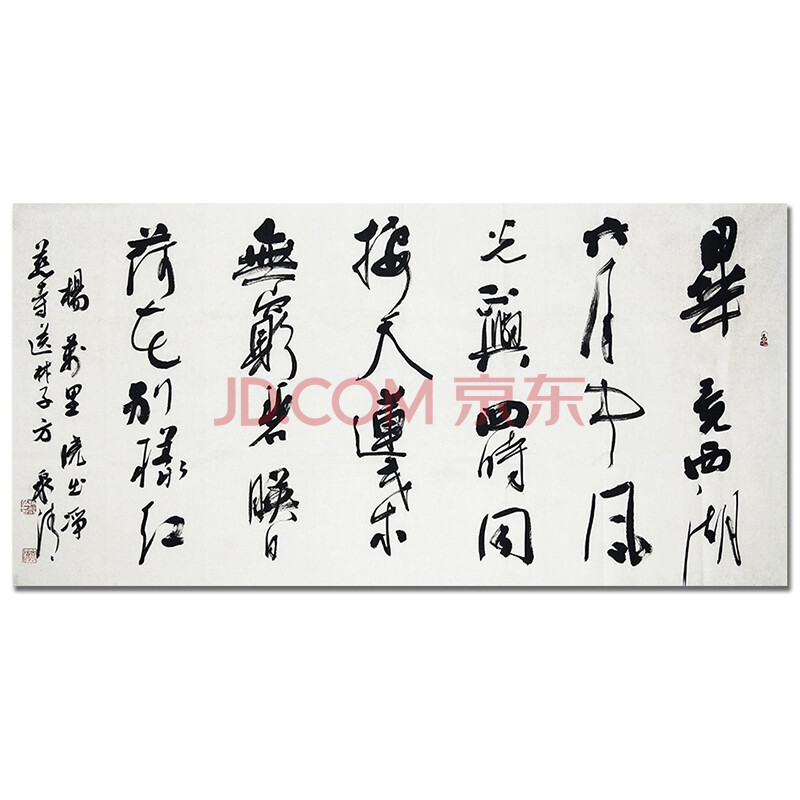 畢竟西湖
六月中風
光與四時同
接天蓮葉
無窮碧暎日
荷花別樣紅
楊萬里曉出淨
慈寺送林子方
JD.COM 京东